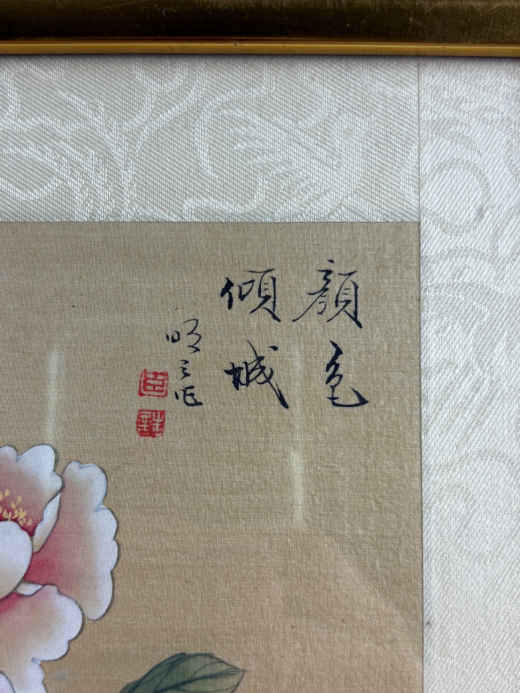 顔色
傾城
明之作